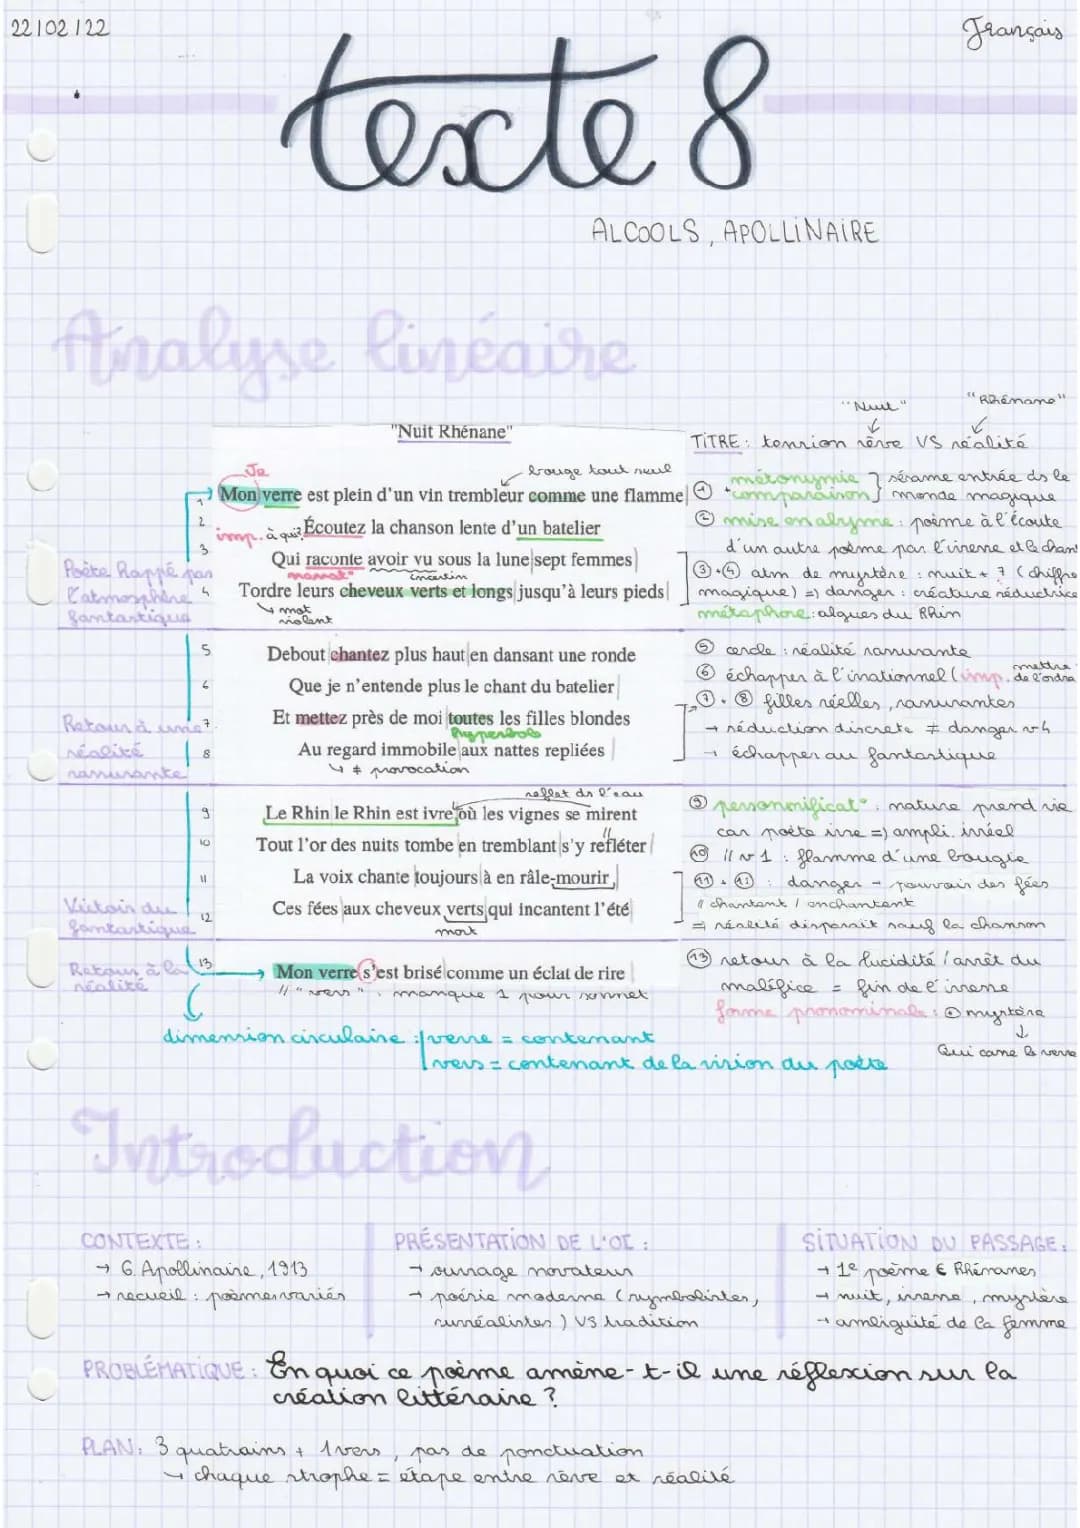 22/02/22
Français
texte 8
ALCOOLS, APOLLINAIRE
Analyse linéaire
"Nuit" "Rhénane"
"Nuit Rhénane"
TITRE : tension rêve VS réalité
Je
bouge tout seul
1 Mon verre est plein d'un vin trembleur comme une flamme
① métonymie + comparaison } sésame entrée ds le monde magique
2 imp. à qui? Écoutez la chanson lente d'un batelier
② mise en abyme : poème à l'écoute
d'un autre poème par l'ivresse et le chant
3 Qui raconte avoir vu sous la lune sept femmes
narrat° incertin
③+④ atm de mystère : nuit + 7 (chiffre
4 Tordre leurs cheveux verts et longs jusqu'à leurs pieds
↳ mot violent
magique) => danger : créature séductrice
métaphore : algues du Rhin
Poète happé par
l'atmosphère
fantastique
5 Debout chantez plus haut en dansant une ronde
⑤ cercle : réalité rassurante
6 Que je n'entende plus le chant du batelier
⑥ échapper à l'irrationnel (imp. mettre de l'ordre
7 Et mettez près de moi toutes les filles blondes
hyperbole
⑦+⑧ filles réelles, rassurantes
→ séduction discrete ≠ danger v4
8 Au regard immobile aux nattes repliées
↳ ≠ provocation
→ échapper au fantastique
Retour à une
réalité
rassurante
reflet ds l'eau
9 Le Rhin le Rhin est ivre où les vignes se mirent
⑨ personnificat° : nature prend vie
car poète ivre => ampli. irréel
10 Tout l'or des nuits tombe en tremblant s'y refléter
//
⑩ // v 1 : flamme d'une bougie
11 La voix chante toujours à en râle-mourir
⑪+⑫ : danger → pouvoir des fées
// chantent / enchantent
12 Ces fées aux cheveux verts qui incantent l'été
mort
=> réalité disparait sauf la chanson
Victoir du
fantastique
13 Mon verre s'est brisé comme un éclat de rire
⑬ retour à la lucidité / arrêt du
maléfice = fin de l'ivresse
Retour à la
réalité
// "vers" : manque 1 pour sonnet
forme pronominale : ⊕ mystère
↓
Qui casse le verre
dimension circulaire : verre = contenant
vers = contenant de la vision du poète
Introduction
CONTEXTE :
→ G. Apollinaire, 1913
→ recueil : poèmes variés
PRÉSENTATION DE L'OI :
→ ouvrage novateur
→ poésie moderne (symbolistes,
surréalistes) VS tradition
SITUATION DU PASSAGE :
→ 1e poème ∈ Rhénanes
→ nuit, ivresse, mystère
→ ambiguité de la femme
PROBLÉMATIQUE : En quoi ce poème amène-t-il une réflexion sur la
création littéraire ?
PLAN : 3 quatrains + 1 vers, pas de ponctuation
↳ chaque strophe = étape entre rêve et réalité